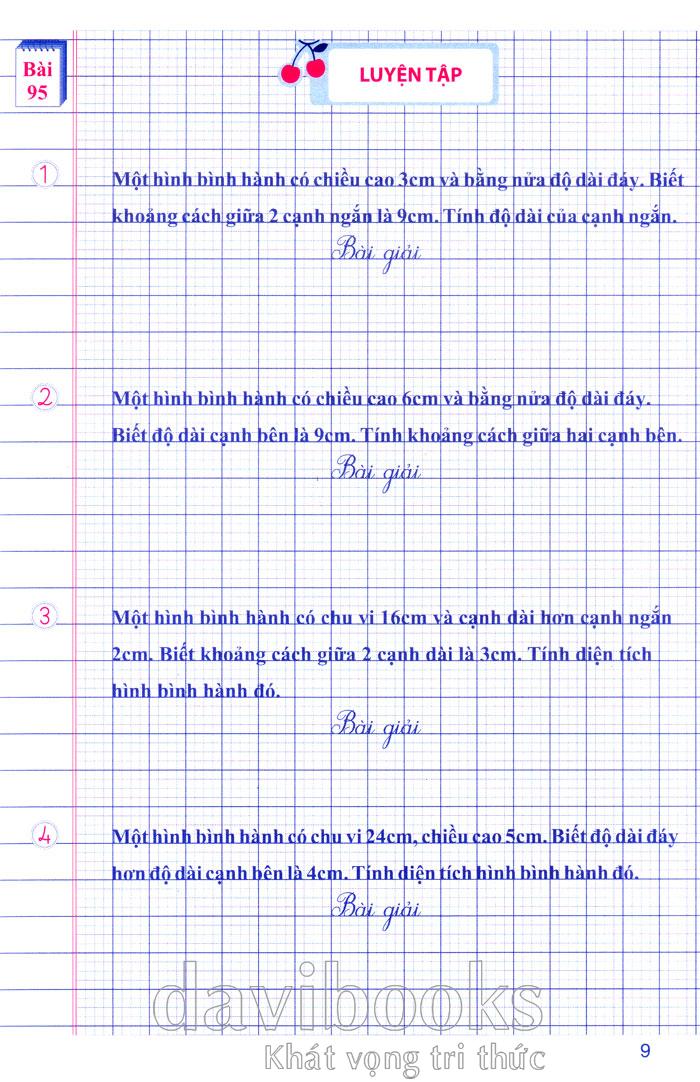 Bài
95
LUYỆN TẬP
1
Một hình bình hành có chiều cao 3cm và bằng nửa độ dài đáy. Biết
khoảng cách giữa 2 cạnh ngắn là 9cm. Tính độ dài của cạnh ngắn.
Bài giải
2
Một hình bình hành có chiều cao 6cm và bằng nửa độ dài đáy.
Biết độ dài cạnh bên là 9cm. Tính khoảng cách giữa hai cạnh bên.
Bài giải
3
Một hình bình hành có chu vi 16cm và cạnh dài hơn cạnh ngắn
2cm. Biết khoảng cách giữa 2 cạnh dài là 3cm. Tính diện tích
hình bình hành đó.
Bài giải
4
Một hình bình hành có chu vi 24cm, chiều cao 5cm. Biết độ dài đáy
hơn độ dài cạnh bên là 4cm. Tính diện tích hình bình hành đó.
Bài giải
davibooks
Khát vọng tri thức
9